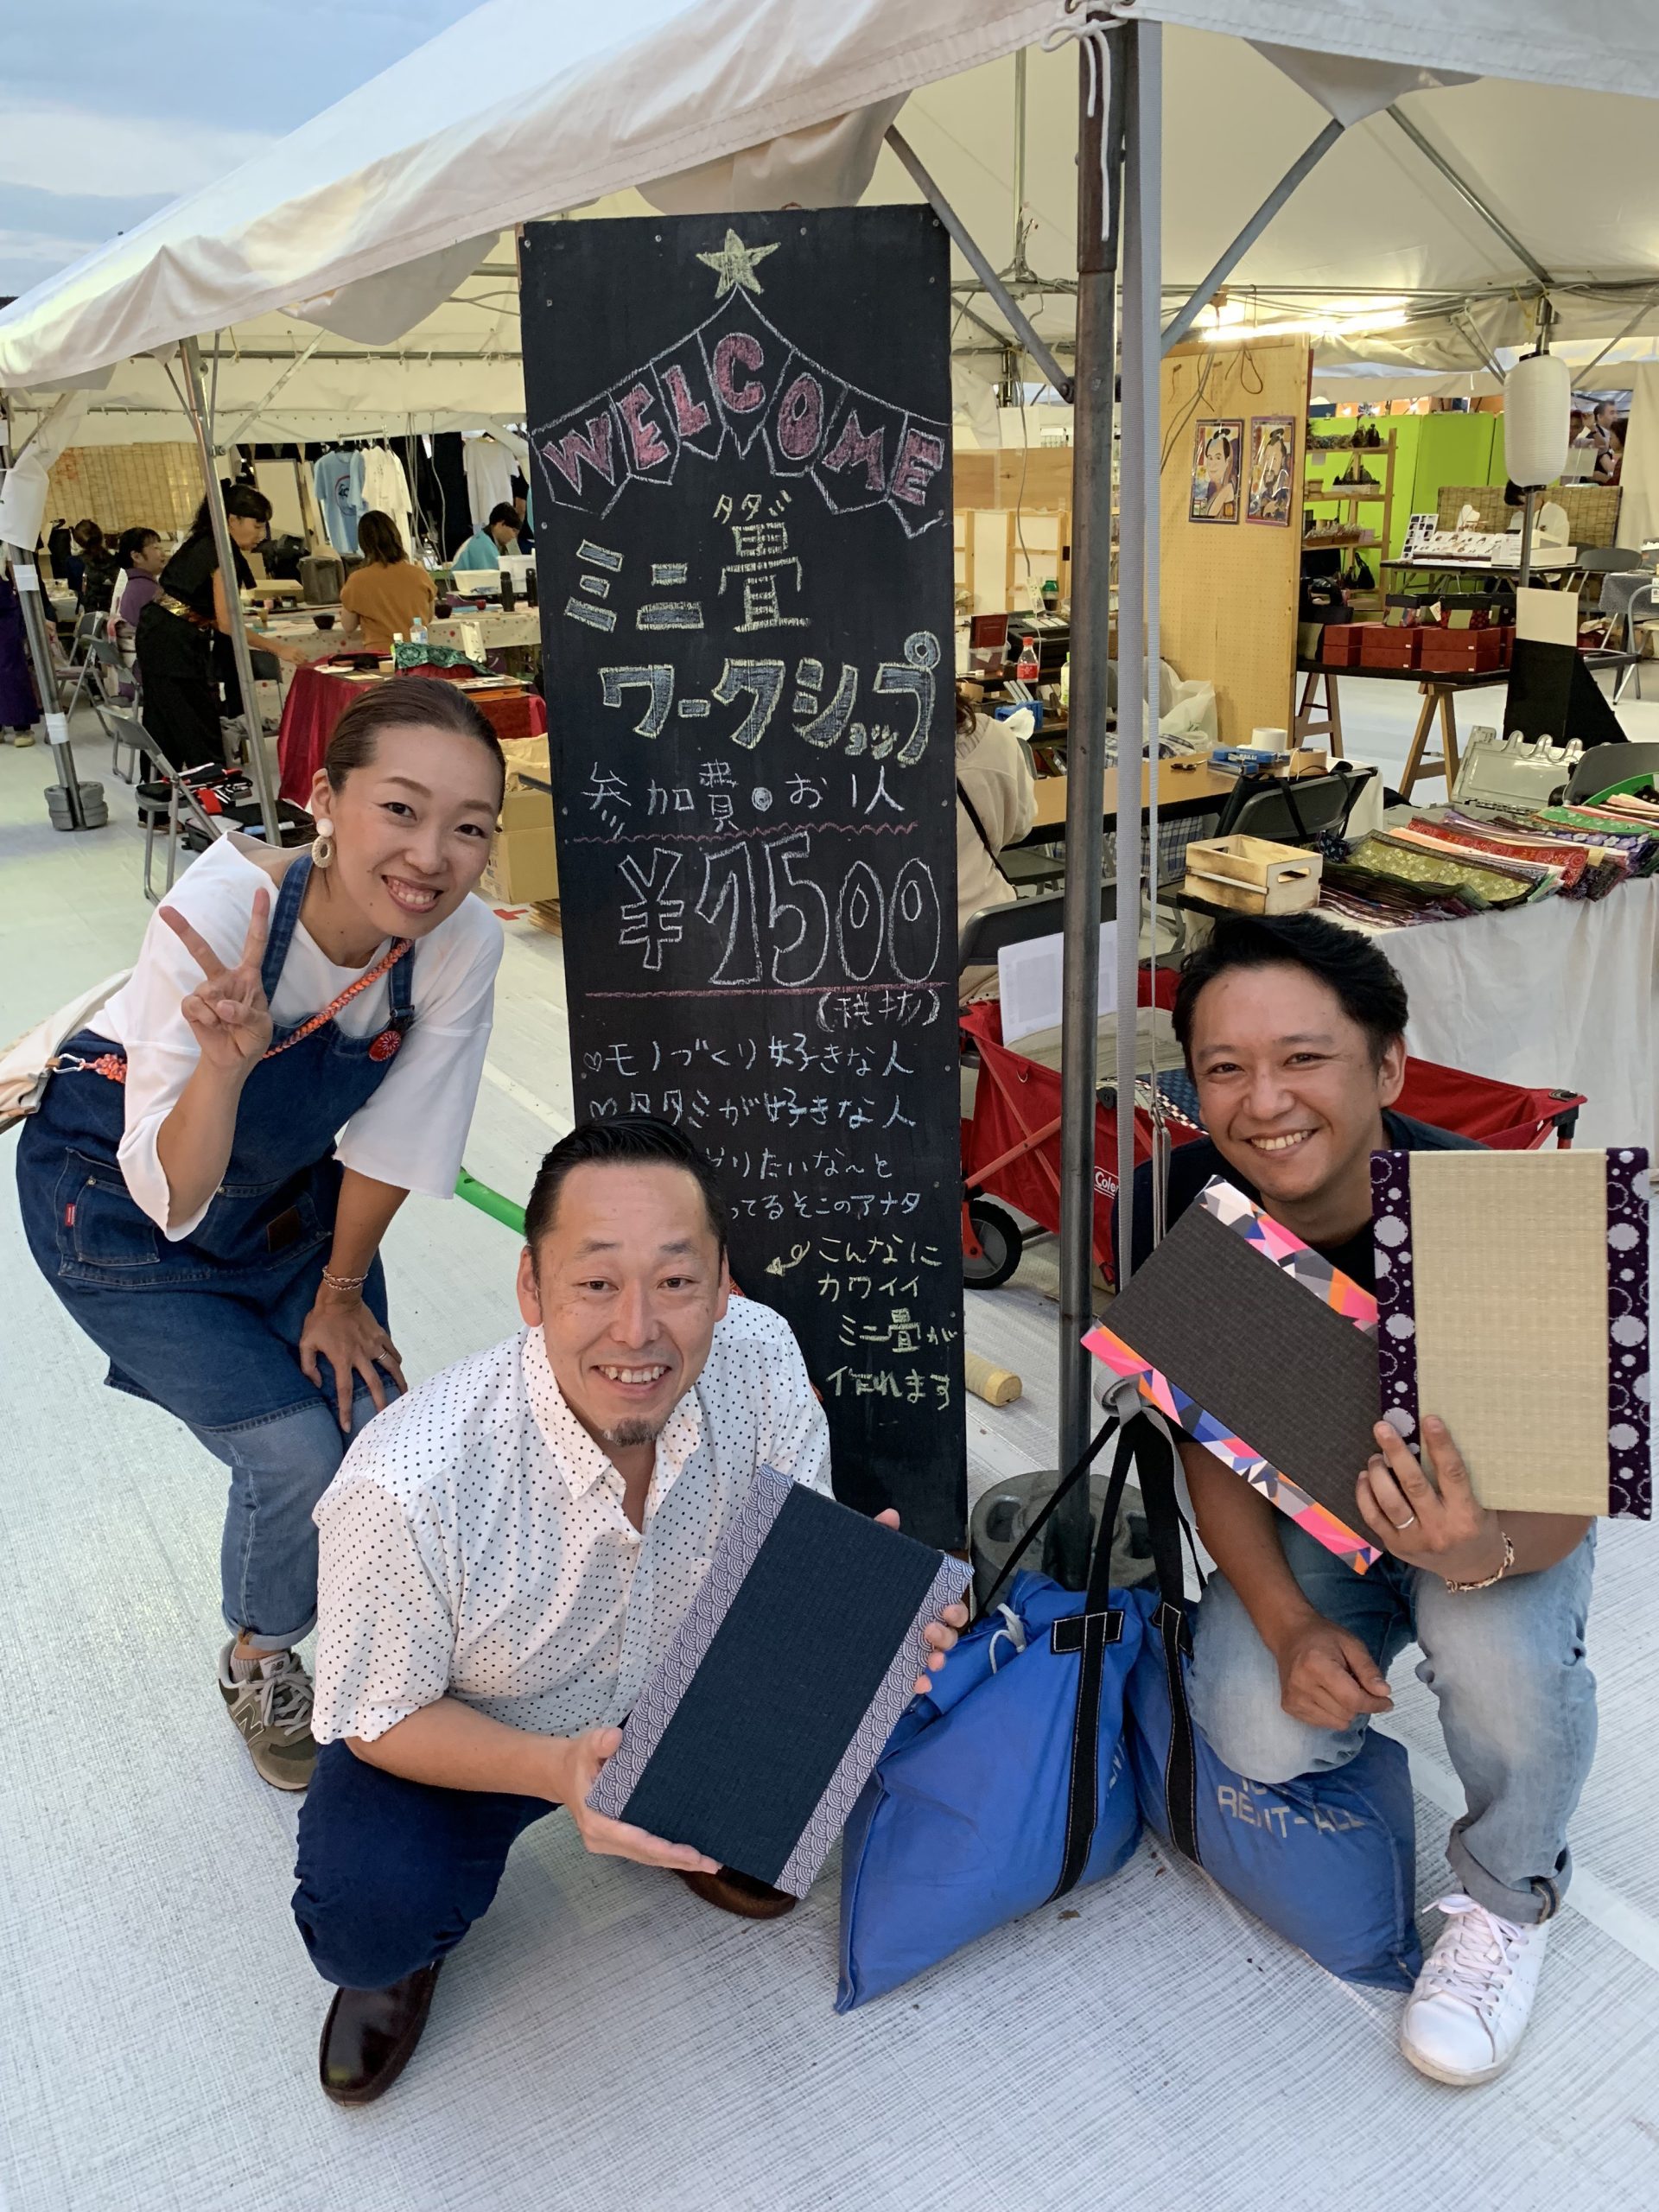 WELCOME
タダミ
ミニ畳
ワークショップ
参加費・お1人
¥2500
(税抜)
♡モノづくり好きな人
♡タタミが好きな人
りたいな〜と
ってるそこのアナタ
こんなに
カワイイ
ミニ畳が
作れます
Cole
RENT-ALL
N